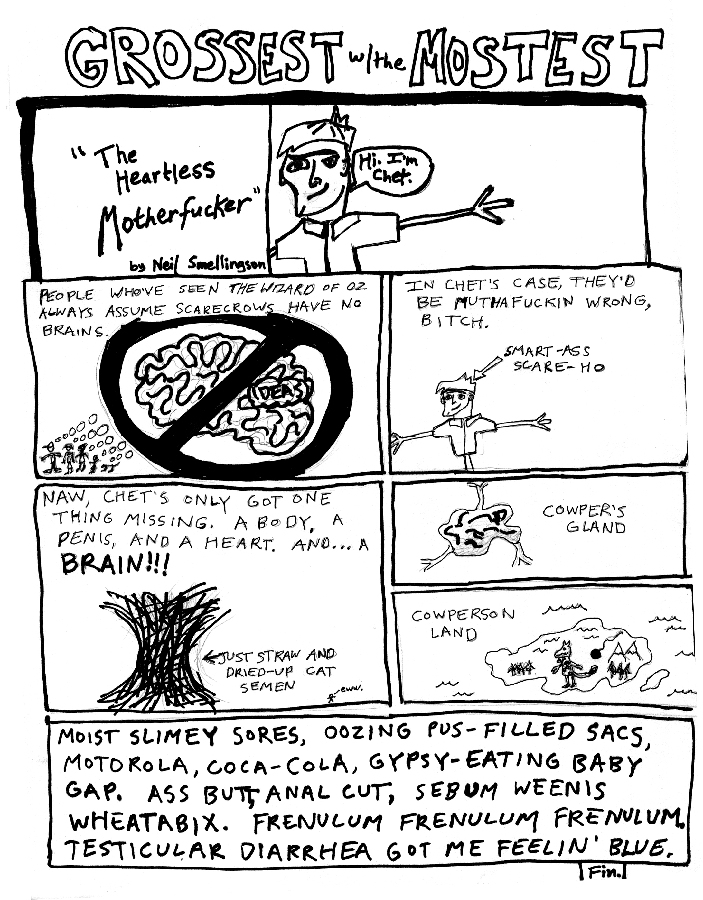 GROSSEST w/the MOSTEST
"The
Heartless
Motherfucker"
by Neil Smellingson
Hi. I'm
Chet.
PEOPLE WHO'VE SEEN THE WIZARD OF OZ
ALWAYS ASSUME SCARECROWS HAVE NO
BRAINS.
IDEAS
IN CHET'S CASE, THEY'D
BE MUTHAFUCKIN WRONG,
BITCH.
SMART-ASS
SCARE-HO
NAW, CHET'S ONLY GOT ONE
THING MISSING. A BODY, A
PENIS, AND A HEART. AND... A
BRAIN!!!
JUST STRAW AND
DRIED-UP CAT
SEMEN
eww.
COWPER'S
GLAND
COWPERSON
LAND
MOIST SLIMEY SORES, OOZING PUS-FILLED SACS,
MOTOROLA, COCA-COLA, GYPSY-EATING BABY
GAP. ASS BUTT ANAL CUT, SEBUM WEENIS
WHEATABIX. FRENULUM FRENULUM FRENULUM.
TESTICULAR DIARRHEA GOT ME FEELIN' BLUE.
Fin.